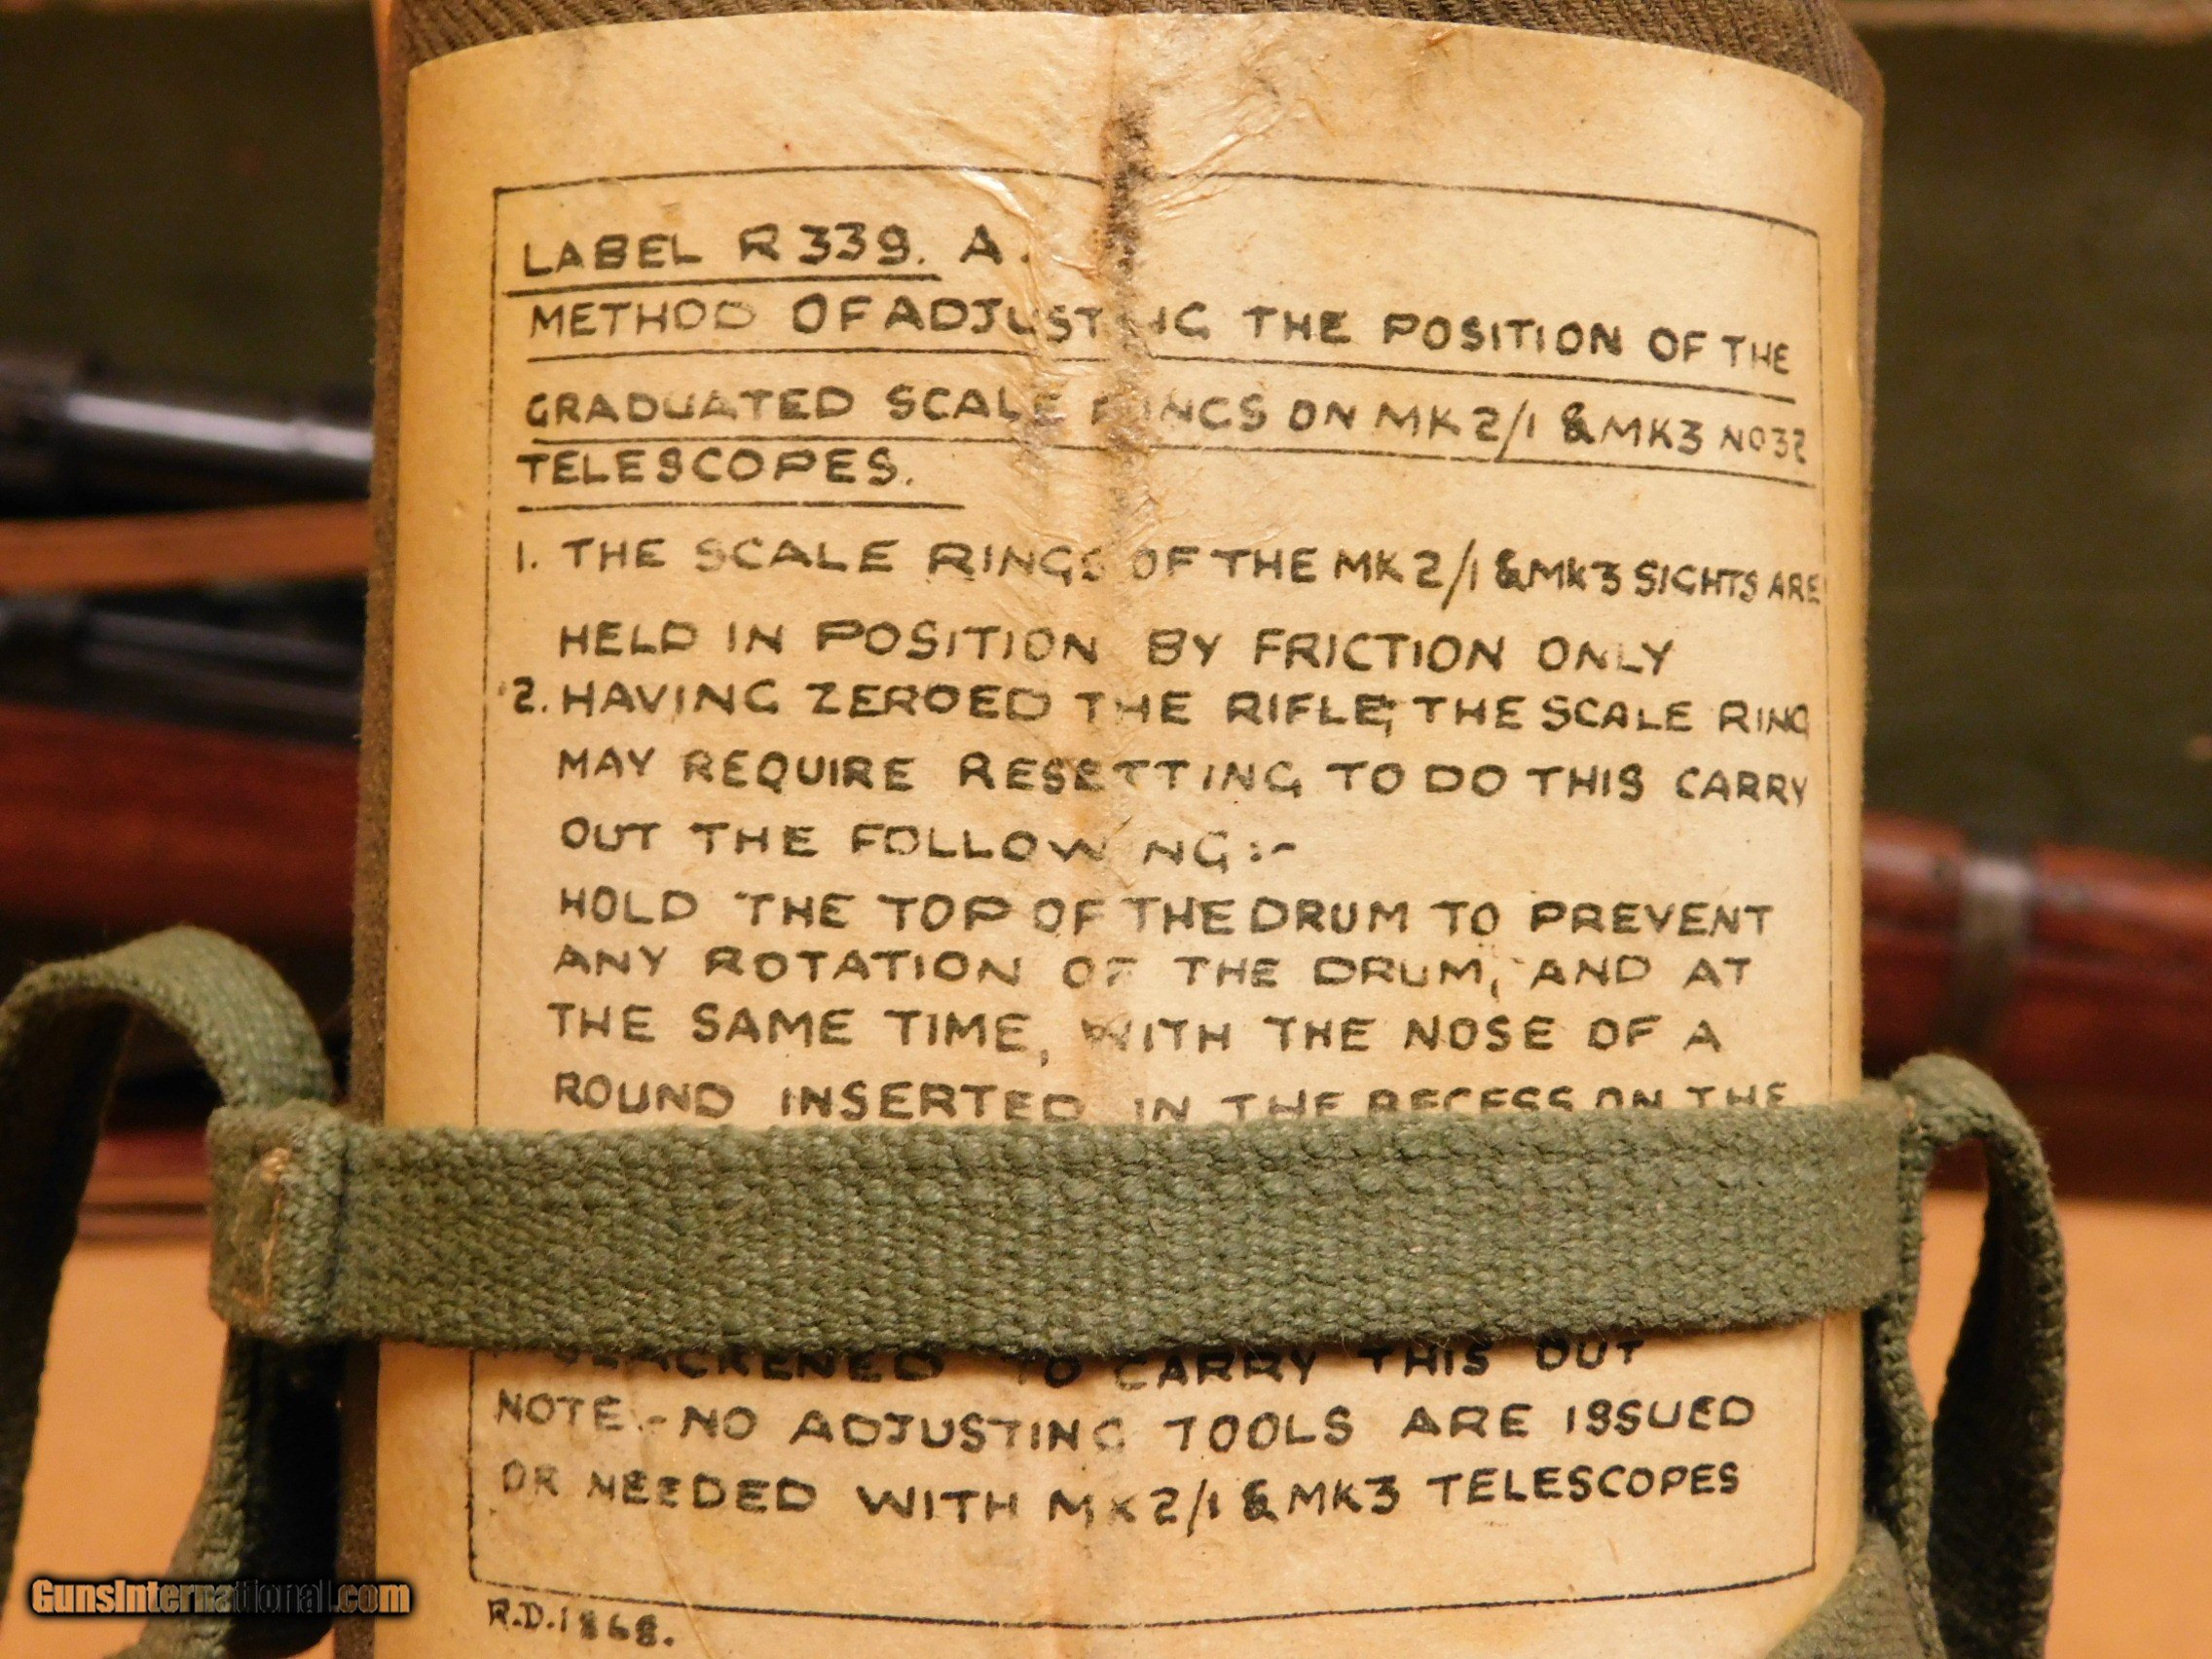 LABEL R 339. A.
METHOD OF ADJUSTING THE POSITION OF THE
GRADUATED SCALE RINGS ON MK 2/1 & MK3 NO32
TELESCOPES.
1. THE SCALE RINGS OF THE MK 2/1 & MK3 SIGHTS ARE
HELD IN POSITION BY FRICTION ONLY
2. HAVING ZEROED THE RIFLE; THE SCALE RING
MAY REQUIRE RESETTING TO DO THIS CARRY
OUT THE FOLLOWING:-
HOLD THE TOP OF THE DRUM TO PREVENT
ANY ROTATION OF THE DRUM, AND AT
THE SAME TIME, WITH THE NOSE OF A
ROUND INSERTED IN THE RECESS ON THE
SLACKENED TO CARRY THIS OUT
NOTE.-NO ADJUSTING TOOLS ARE ISSUED
OR NEEDED WITH MK 2/1 & MK3 TELESCOPES
R.D.1868.
GunsInternational.com